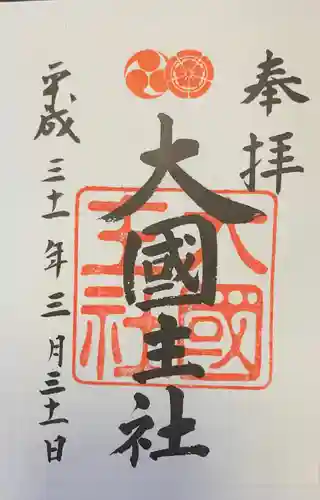 奉拝
大國主社
大國主社
平成三十一年三月三十一日